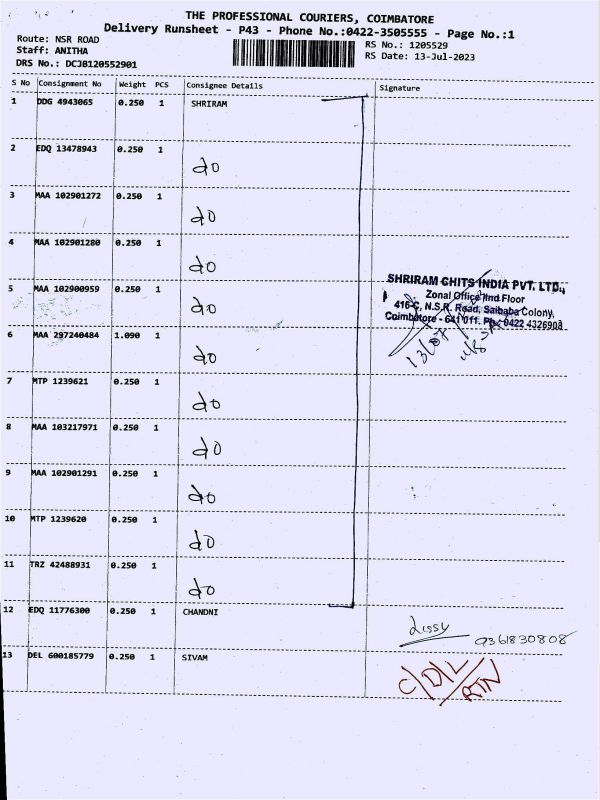 THE PROFESSIONAL COURIERS, COIMBATORE
Delivery Runsheet - P43 - Phone No.:0422-3505555 - Page No.:1
Route: NSR ROAD
RS No.: 1205529
Staff: ANITHA
RS Date: 13-Jul-2023
DRS No.: DCJB120552901
S No Consignment No Weight PCS Consignee Details Signature
1 DDG 4943065 0.250 1 SHRIRAM
2 EDQ 13478943 0.250 1 do
3 MAA 102901272 0.250 1 do
4 MAA 102901280 0.250 1 do
5 MAA 102900959 0.250 1 do
SHRIRAM CHITS INDIA PVT. LTD.,
Zonal Office IInd Floor
416-C, N.S.R. Road, Saibaba Colony,
Coimbatore - 641 011. Ph: 0422 4326908
6 MAA 297240484 1.090 1 do
13/07
7 MTP 1239621 0.250 1 do
8 MAA 103217971 0.250 1 do
9 MAA 102901291 0.250 1 do
10 MTP 1239620 0.250 1 do
11 TRZ 42488931 0.250 1 do
12 EDQ 11776300 0.250 1 CHANDNI
9361830808
13 DEL 600185779 0.250 1 SIVAM
C/D/L
RTN